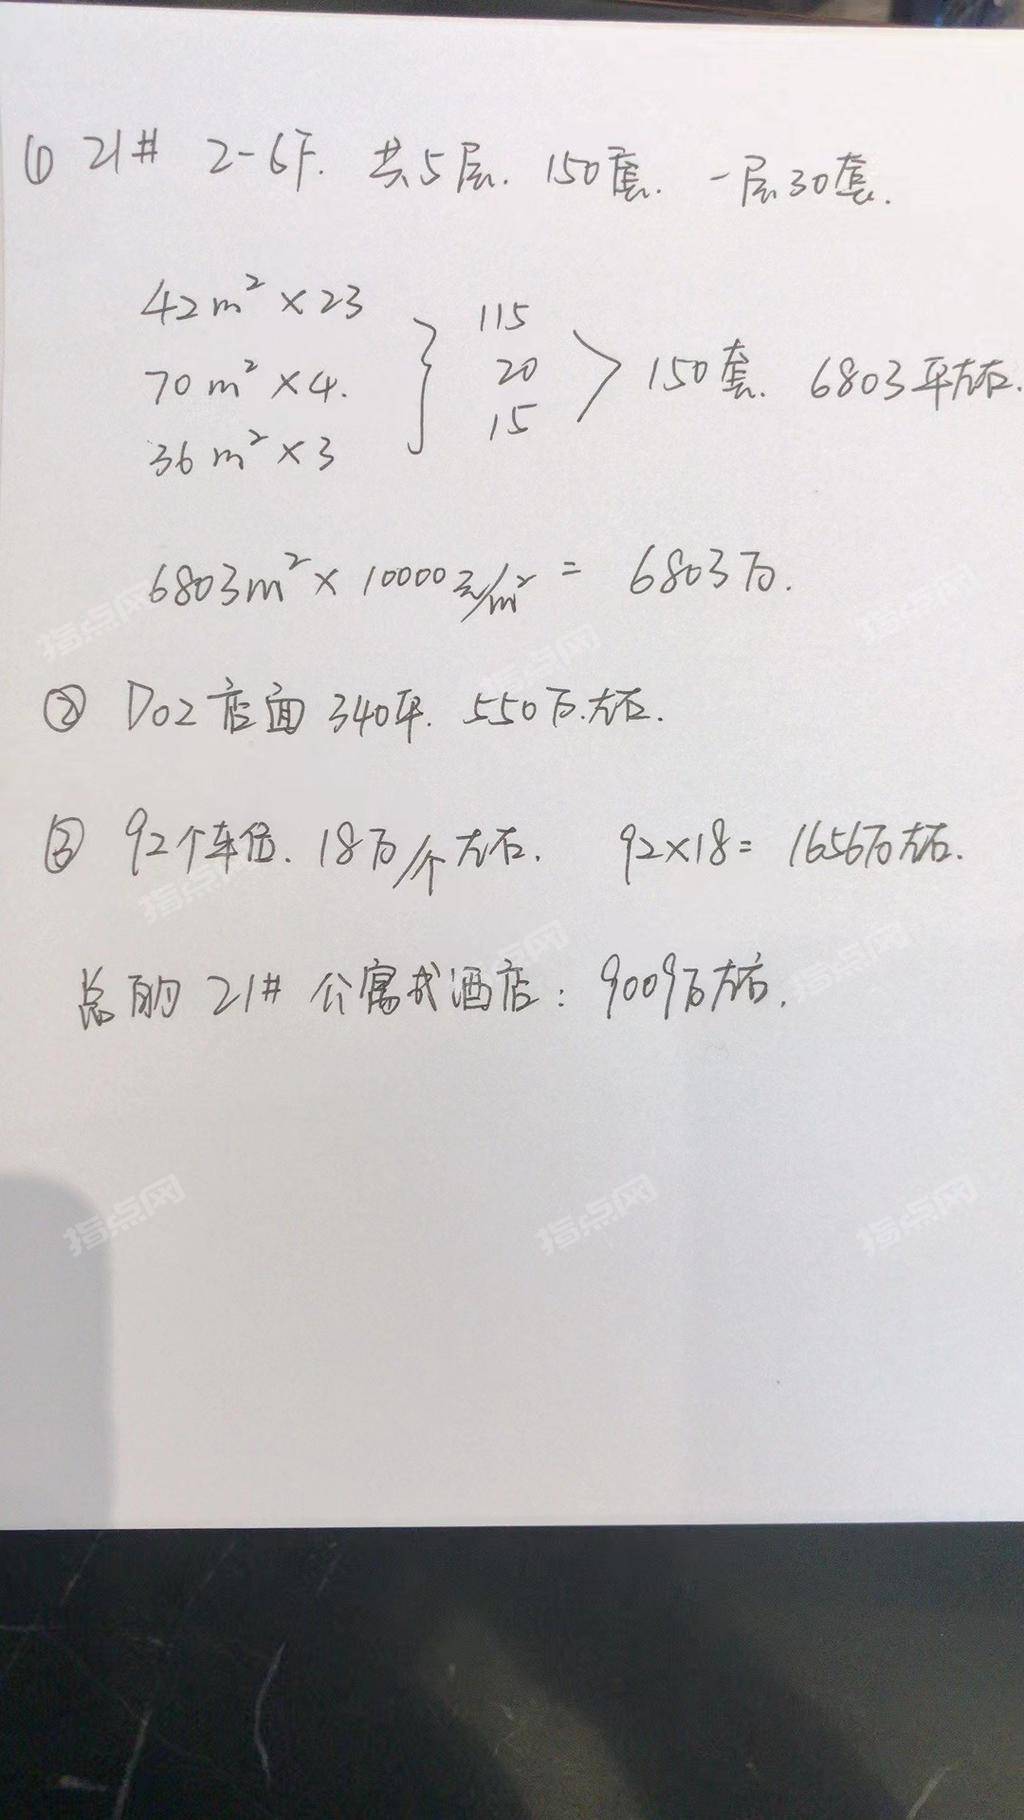 ① 21# 2-6F. 共5层. 150套. 一层30套.
42m² × 23
115
70m² × 4.
20
150套. 6803平左右.
36m² × 3
15
6803m² × 10000元/m² = 6803万.
② D02店面 340平. 550万.左右.
③ 92个车位. 18万/个左右. 92×18= 1656万左右.
总的 21# 公寓式酒店: 9009万左右.
指点网
指点网
指点网
指点网
指点网
指点网
指点网
指点网
指点网